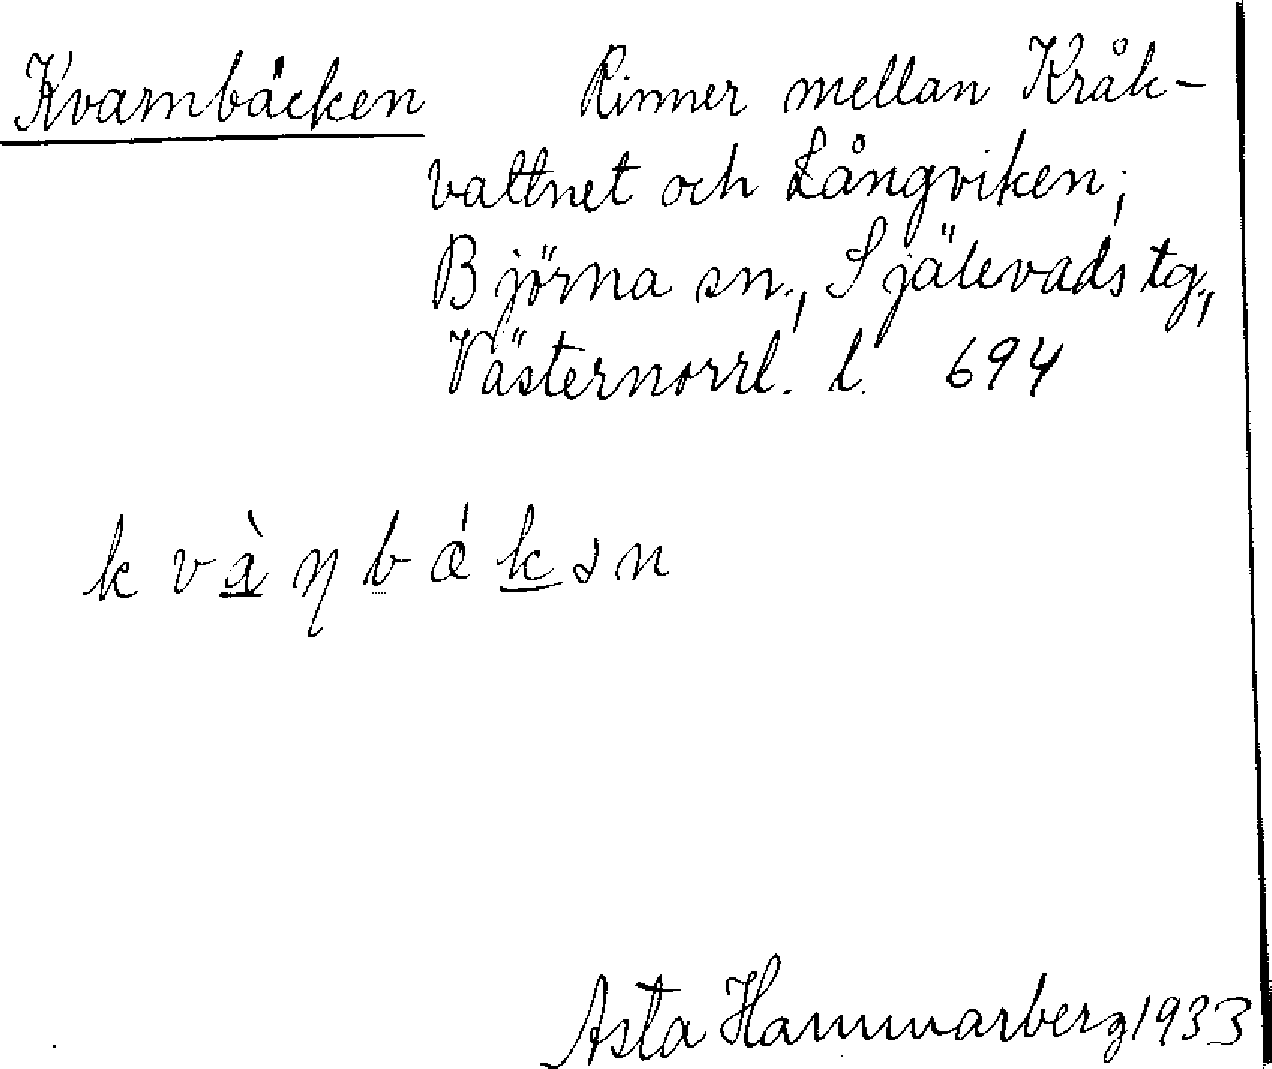 Kvarnbäcken Rinner mellan Kråk-
vattnet och Långviken;
Björna sn., Själevads tg.,
Västernorrl. l. 694
kvàŋbákən
Asta Hammarberg 1933